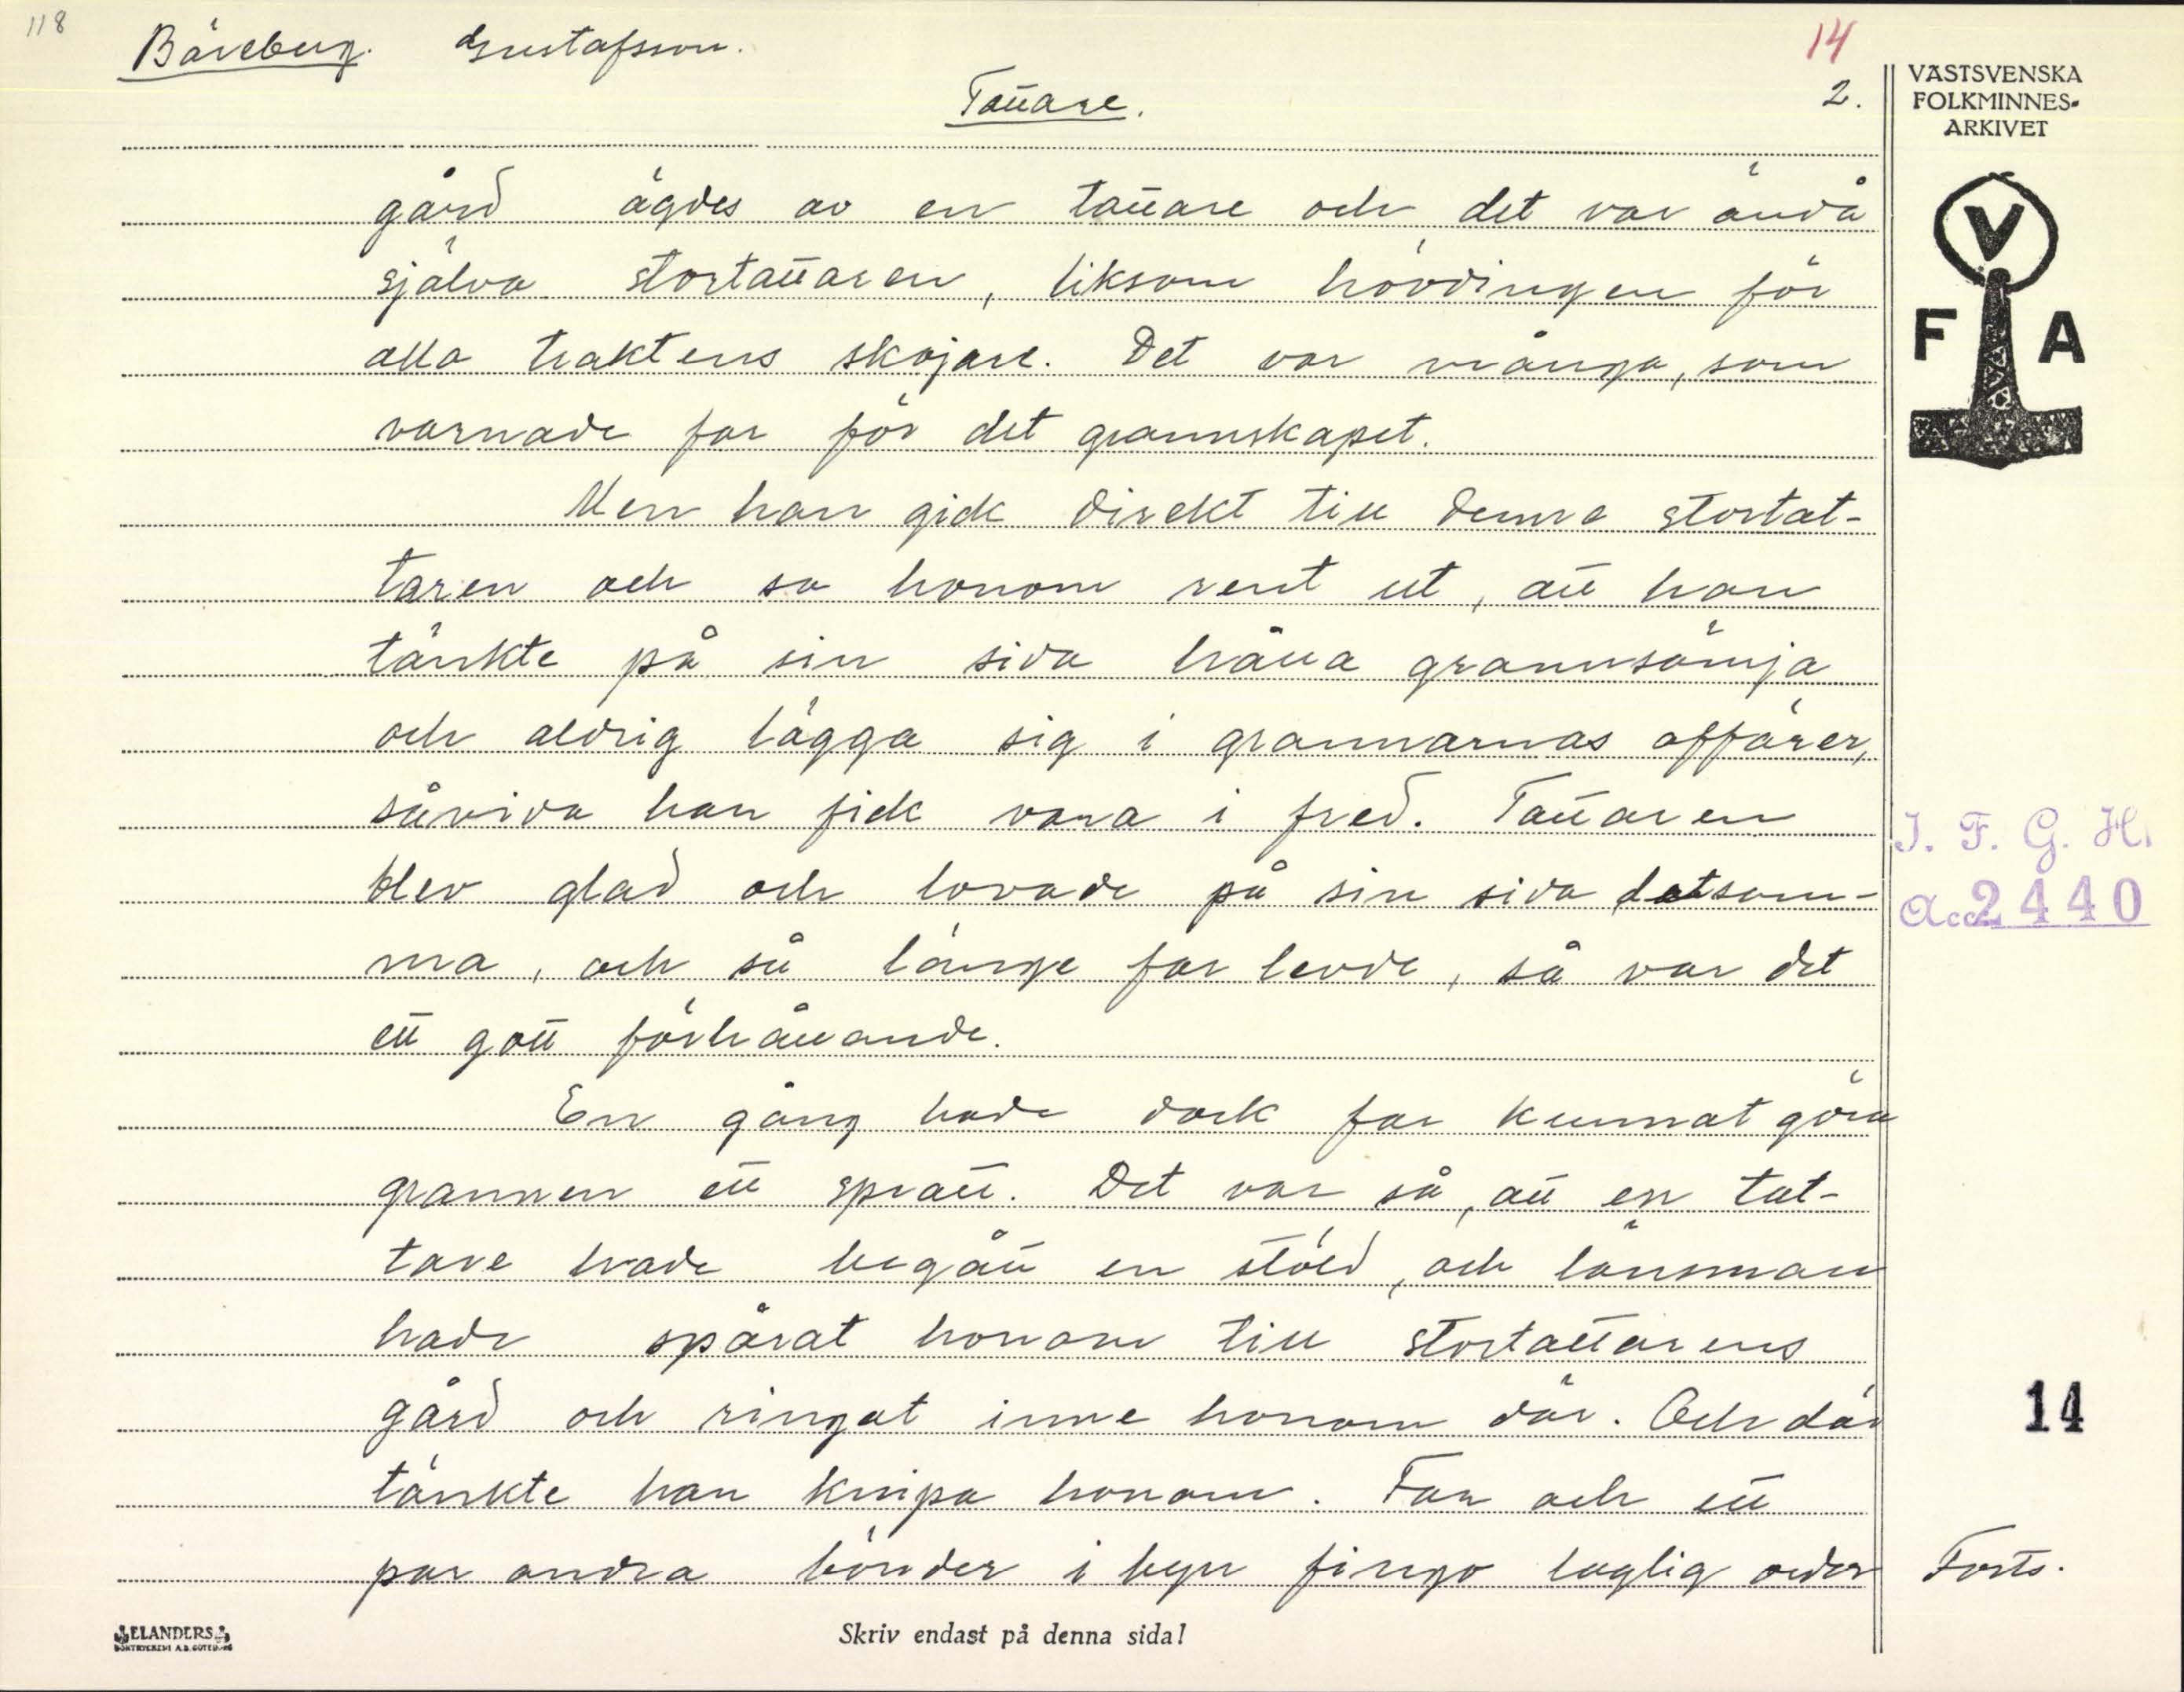 118
Bäreberg. Gustafsson.
14
Tattare.
2.
VÄSTSVENSKA
FOLKMINNES-
ARKIVET
V
F A
gård ägdes av en tattare och det var ändå
själva stortattaren, liksom hövdingen för
alla traktens skojare. Det var många, som
varnade far för det grannskapet.
Men han gick direkt till denne stortat-
taren och sa honom rent ut, att han
tänkte på sin sida hålla grannsämja
och aldrig lägga sig i grannarnas affärer,
såvida han fick vara i fred. Tattaren
blev glad och lovade på sin sida detsam-
ma, och så länge far levde, så var det
ett gott förhållande.
En gång hade dock far kunnat göra
grannen ett spratt. Det var så, att en tat-
tare hade begått en stöld, och länsman
hade spårat honom till stortattarens
gård och ringat inne honom där. Och där
tänkte han knipa honom. Far och ett
par andra bönder i byn fingo laglig order
Forts.
I. F. G. H.
Acc. 2440
14
ELANDERS
BOKTRYCKERI A.B. GÖTEBORG
Skriv endast på denna sida!